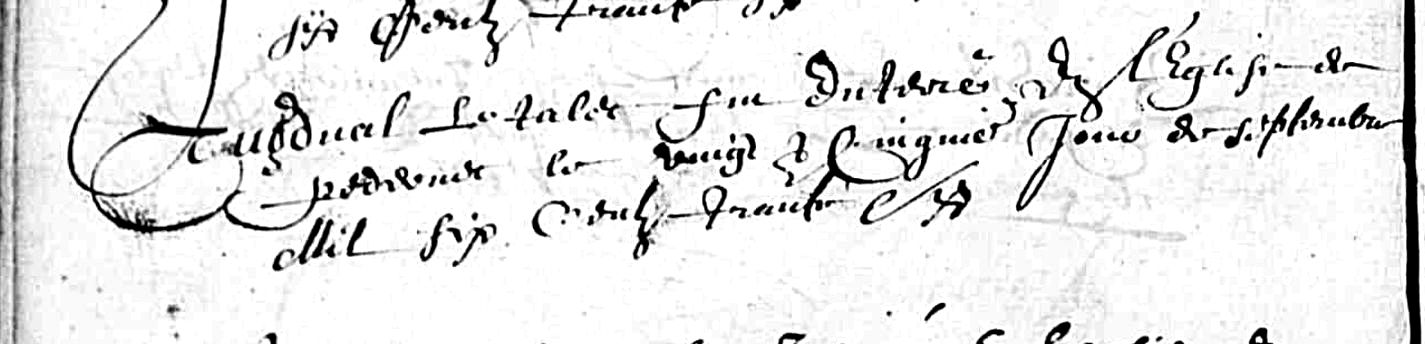 six Centz trante six
Tugdual Le talec fut Enterré En l'Eglise de
pederneec le vingt & Cinquieme Jour de septembre
Mil six Centz trante six